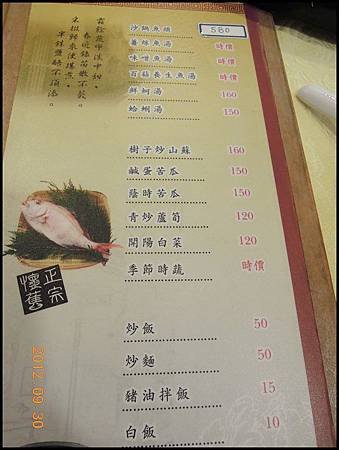 沙鍋魚頭 580
薑絲魚湯 時價
味噌魚湯 時價
百菇養生魚湯 時價
鮮蚵湯 160
蛤蜊湯 150
樹子炒山蘇 160
鹹蛋苦瓜 150
蔭時苦瓜 150
青炒蘆筍 120
開陽白菜 120
季節時蔬 時價
炒飯 50
炒麵 50
豬油拌飯 15
白飯 10
正宗
懷舊
2012 09 30